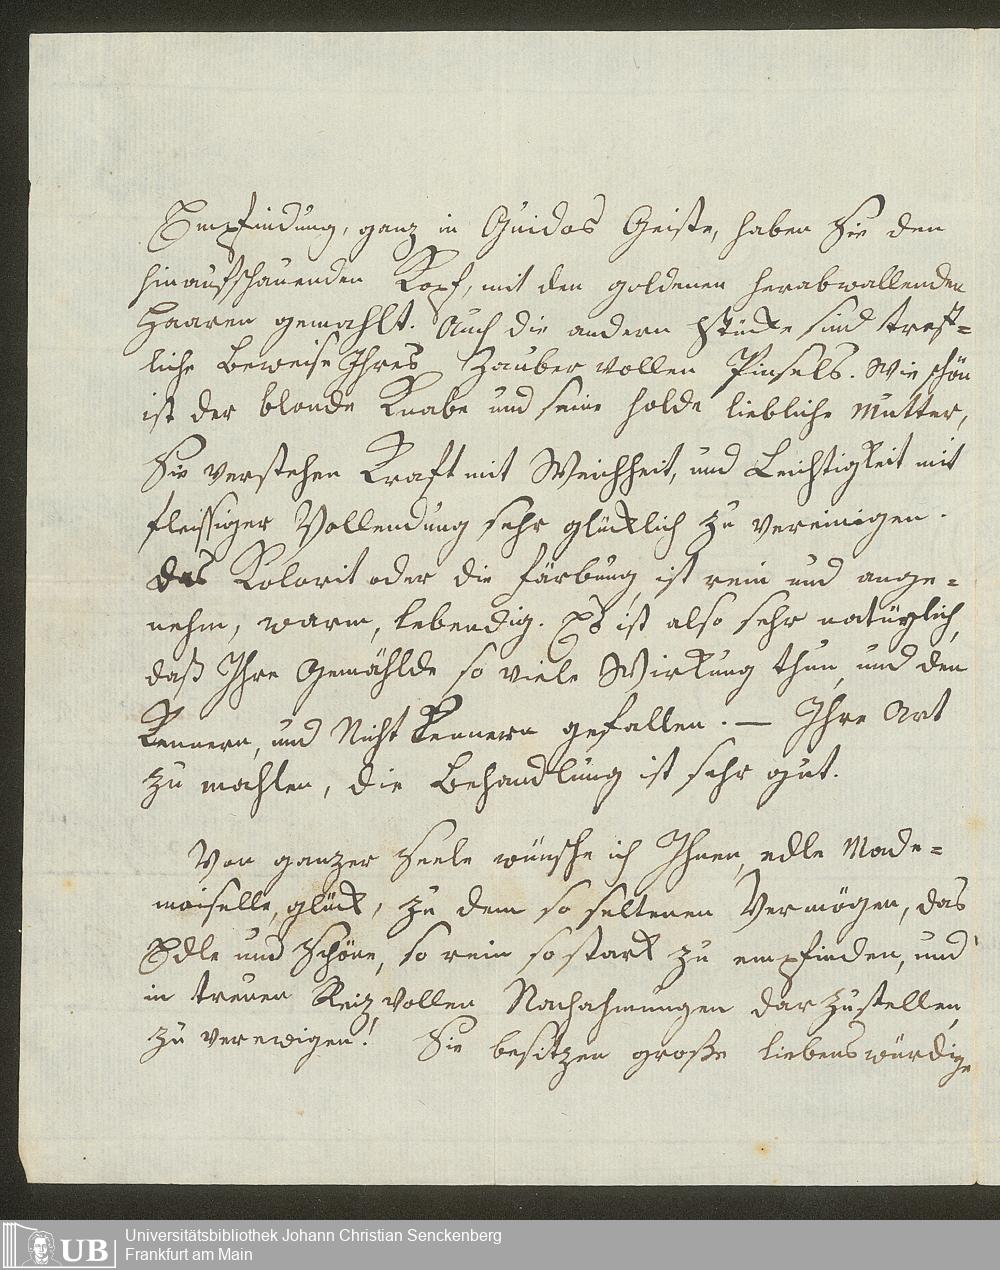 Empfindung, ganz in Guidos Geiste, haben Sie den
hinaufschauenden Kopf, mit den goldenen herabwallenden
Haaren gemahlt. Auch die andern Stücke sind tref=
liche Beweise Ihres Zauber vollen Pinsels. Wie schön
ist der blonde Knabe und seine holde liebliche Mutter,
Sie verstehen Kraft mit Weichheit, und Leichtigkeit mit
fleissiger Vollendung sehr glücklich zu vereinigen.
Das Kolorit oder die Färbung ist rein und ange=
nehm, warm, lebendig. Es ist also sehr natürlich,
daß Ihre Gemählde so viele Wirkung thun, und den
Kennern, und Nicht Kennern gefallen. — Ihre Art
zu mahlen, die Behandlung ist sehr gut.
Von ganzer Seele wünsche ich Ihnen, edle Made=
moiselle, glück, zu dem so seltenen Vermögen, das
Edle und Schöne, so rein so stark zu empfinden, und
in treuen Reiz vollen Nachahmungen darzustellen,
zu verewigen! Sie besitzen große liebenswürdige
UB
Universitätsbibliothek Johann Christian Senckenberg
Frankfurt am Main